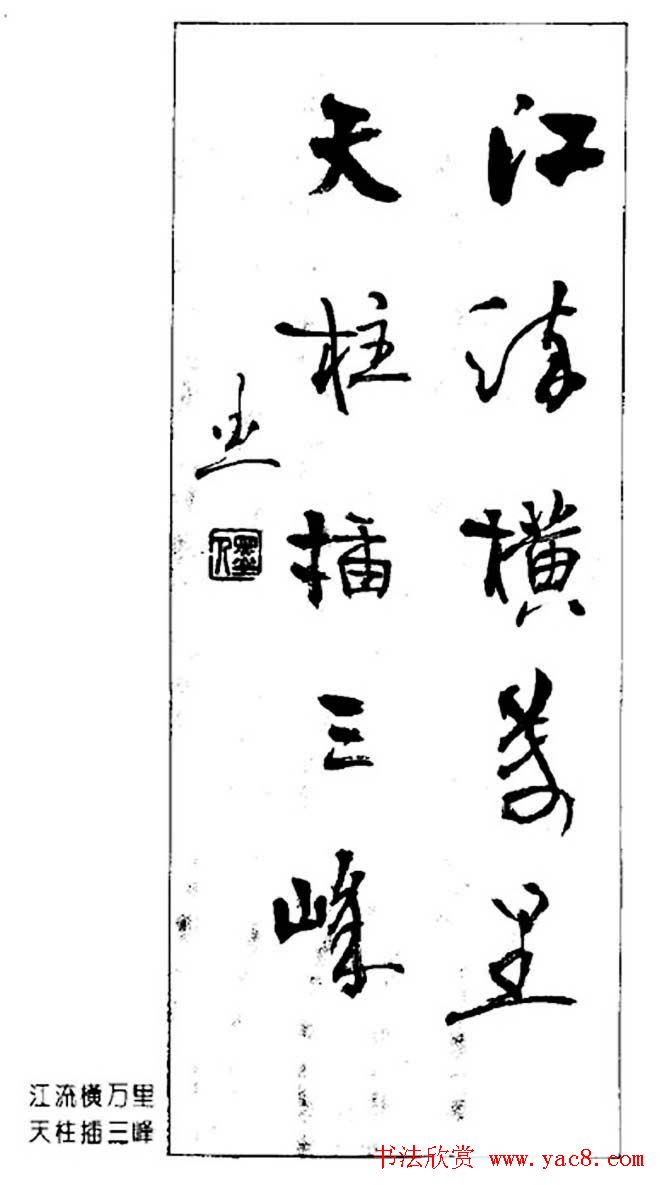 江流横萬里
天柱插三峰
江流横万里
天柱插三峰
书法欣赏 www.yac8.com